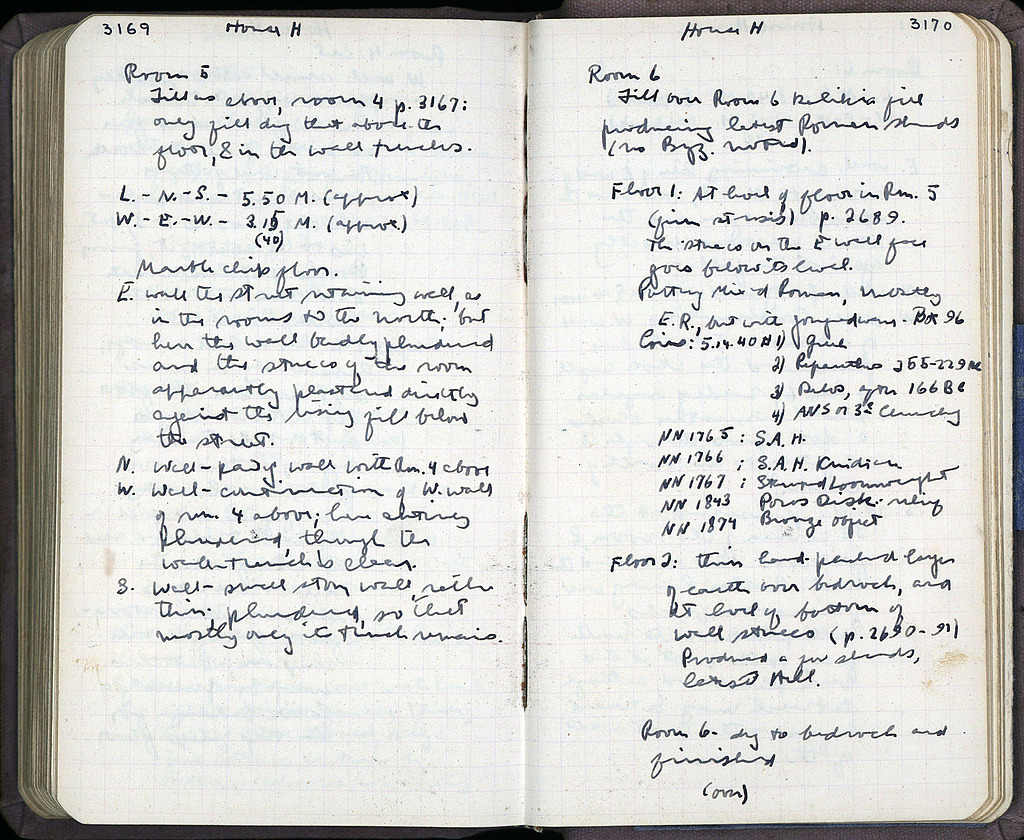 3169 House H
Room 5
Fill as above, room 4 p. 3167:
only fill dug that above the
floor, & in the wall trenches.
L. - N.-S. - 5.50 M. (approx)
W. - E.-W. - 3.15 M. (approx)
(40)
Marble chip floor.
E. wall the street retaining wall, as
in the rooms to the north, but
here the wall badly plundered
and the stucco of the room
apparently plastered directly
against the rising fill below
the street.
N. Wall - party wall with Rm. 4 above
W. Wall - continuation of W. wall
of rm. 4 above; here entirely
plundered, though the
wall trench is clear.
S. Wall - small stone wall, rather
thin, plundered, so that
mostly only its trench remains.
House H 3170
Room 6
Fill over Room 6 fill
producing latest Roman sherds
(no Byz. noted).
Floor 1: At level of floor in Rm. 5
p. 2689.
The stucco on the E wall face
goes below its level.
Pottery Mixed Roman, mostly
E.R., but with - Box 96
Coins: 5.14.40 #1)
2) 255-229 BC
3) Delos, after 166 BC
4) 3rd Century
NN 1765 : S.A.H.
NN 1766 ; S.A.H. Knidian
NN 1767 ; Stamped Loomweight
NN 1843 Poros Disk - relief
NN 1874 Bronze object
Floor 2: thin hard-packed layer
of earth over bedrock, and
at level of bottom of
wall stucco (p. 2690-91)
Produced a few sherds,
latest Hell.
Room 6 - dug to bedrock and
finished
(over)